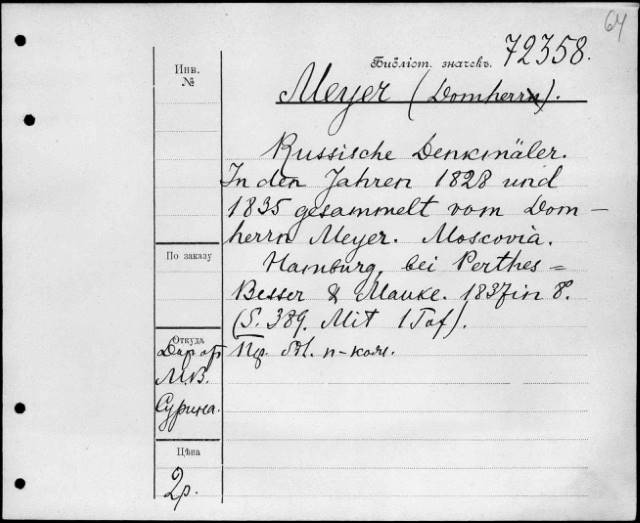 64
Библіот. значекъ. 72358.
Инв.
№
Meyer (Domherr).
Russische Denkmäler.
In den Jahren 1828 und
1835 gesammelt vom Dom-
herrn Meyer. Moscovia.
По заказу
Hamburg, bei Perthes=
Besser & Mauke. 1837 in 8°.
(S. 389. Mit 1 Taf).
Откуда
Дар от
М.В.
Сурина.
Цѣна
2р.